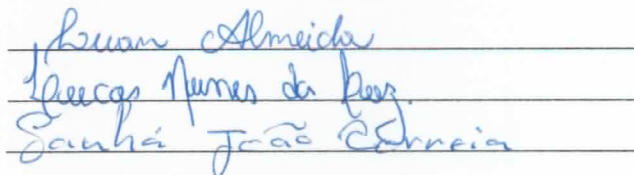 Luan Almeida
Lucas Nunes da Luz.
Sanhá João Correia